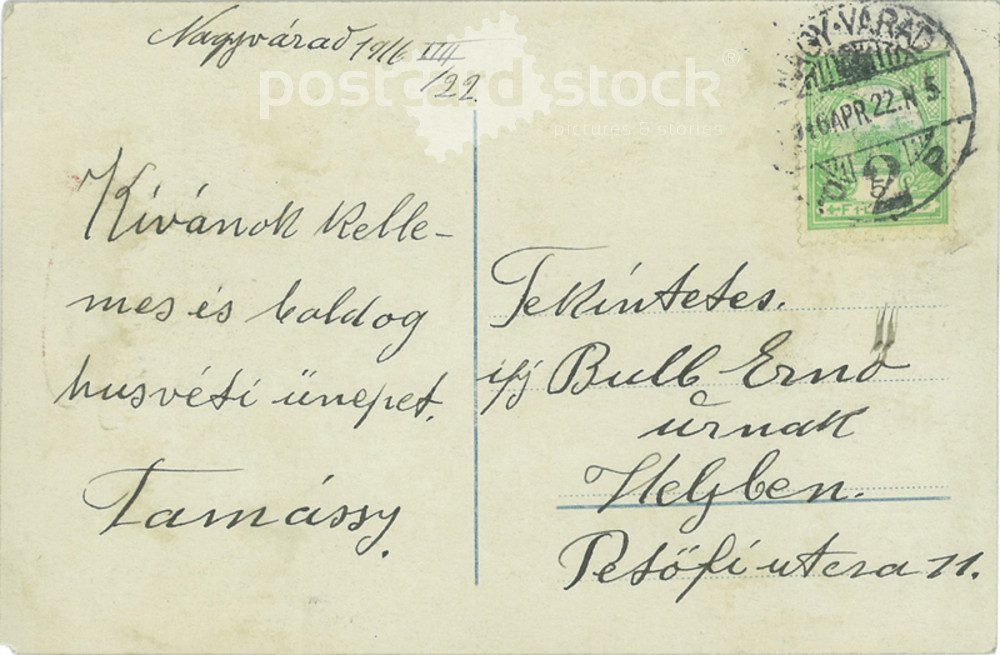 Nagyvárad 1916 IIII
/22.
postcard stock
pictures & stories
NAGY-VÁRAD
916 APR. 22. N 5
2
Kívánok kelle-
mes és boldog
husvéti ünepet.
Tamássy.
Tekíntetes.
ifj Bulb Ernő
úrnak
Helyben.
Petőfi utcza 11.